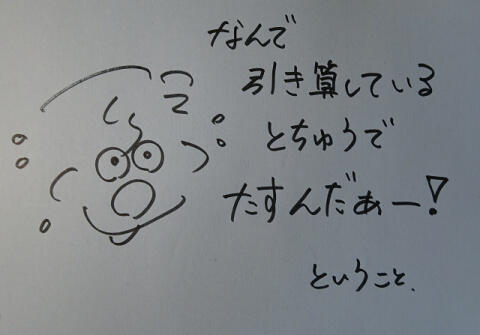 なんで
引き算している
とちゅうで
たすんだぁー!
ということ.